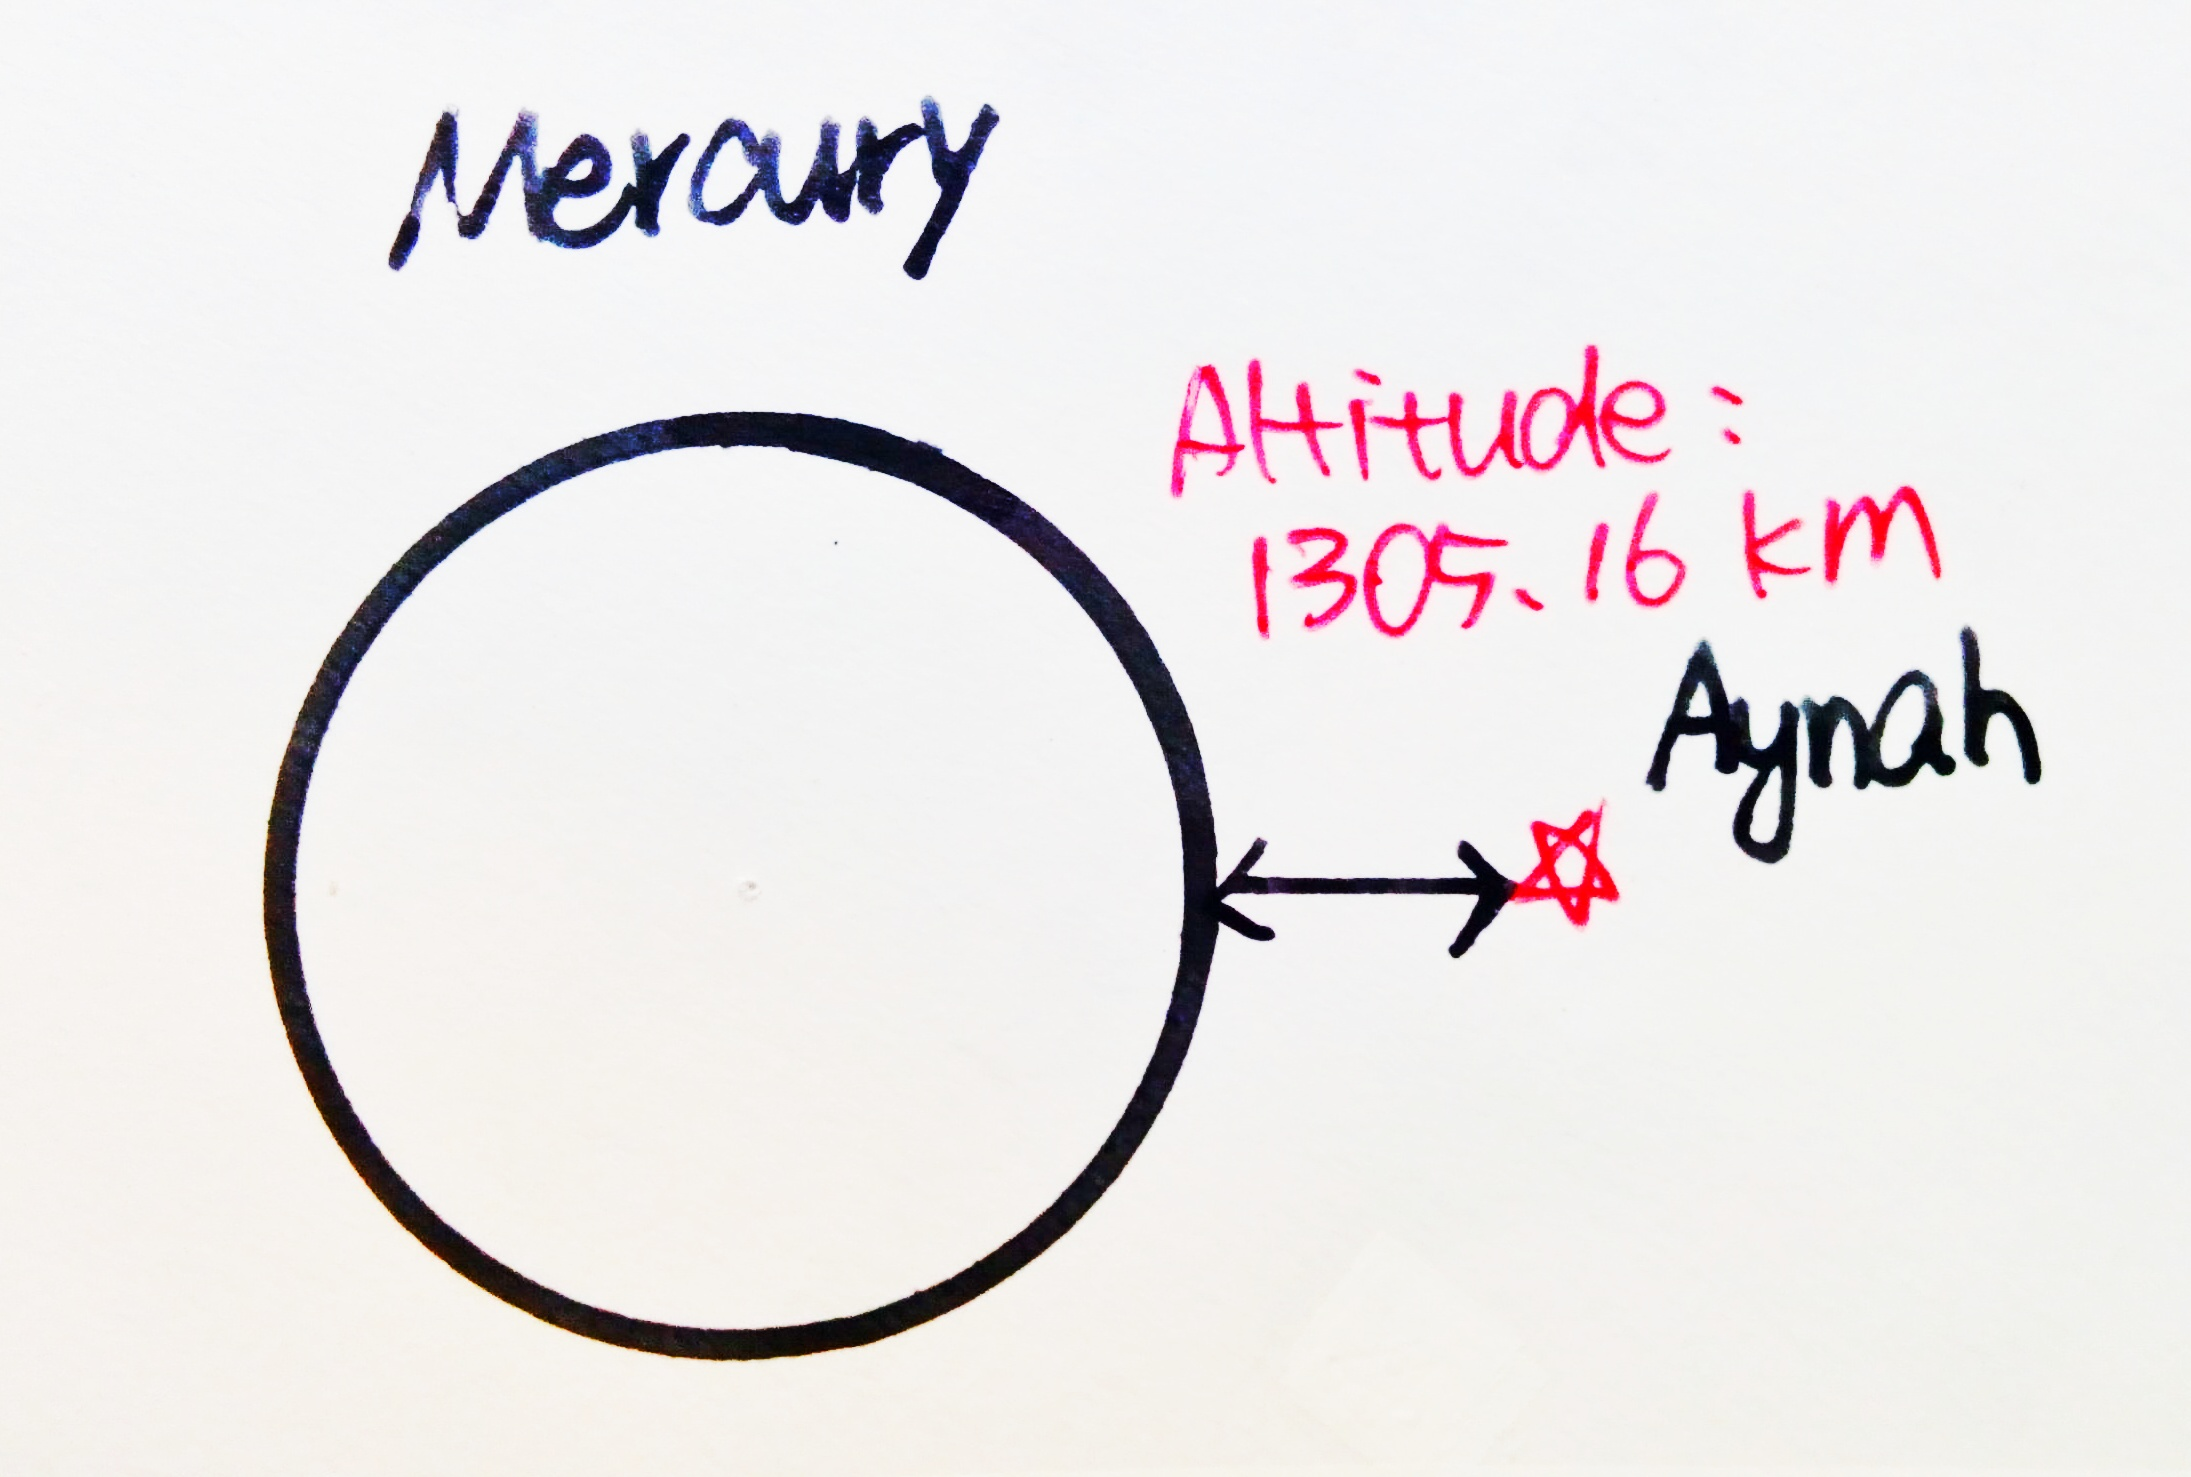 Mercury
Altitude:
1305.16 km
Aynah